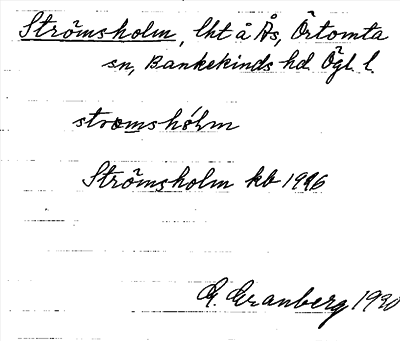 Strömsholm, lht å Ås, Örtomta
sn, Bankekinds hd Ögl. l.
strømshólm
Strömsholm kb 1926
G. Granberg 1930